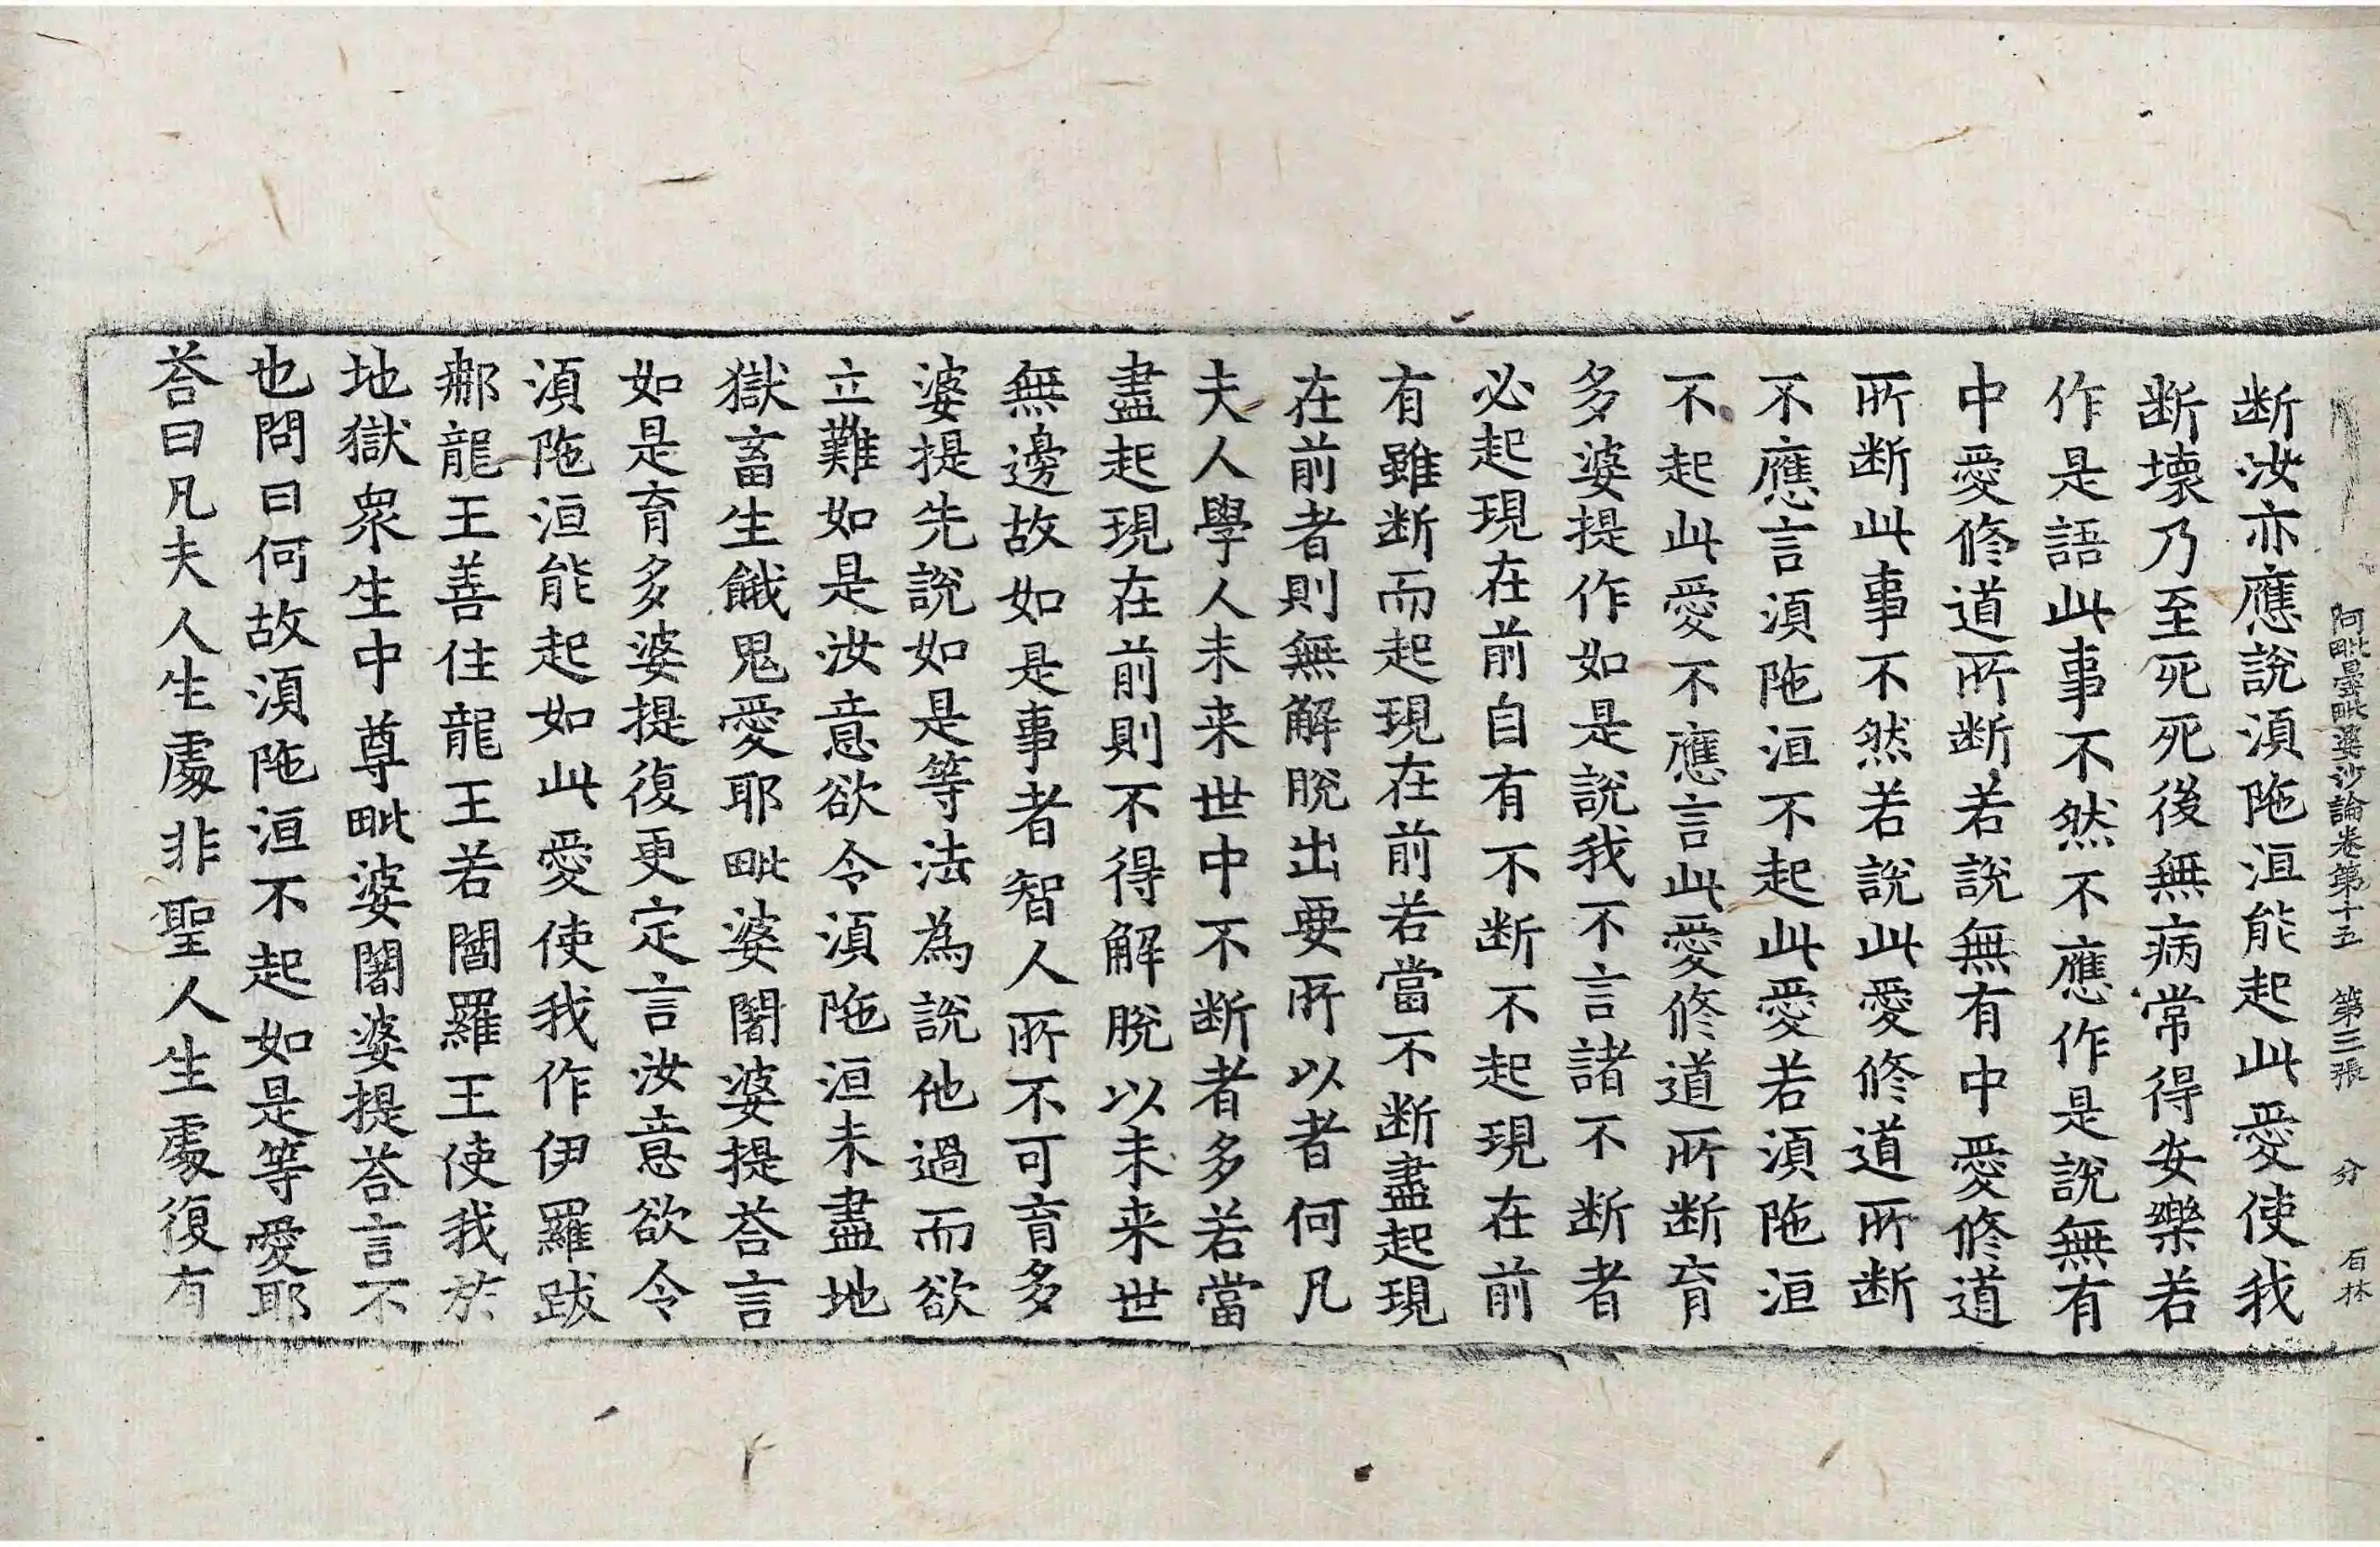 阿毗曇毗婆沙論卷第十五 第三張 分 石林
断汝亦應說湏陁洹能起此愛使我
断壞乃至死死後無病常得安樂若
作是語此事不然不應作是說無有
中愛修道所断若說無有中愛修道
所断此事不然若說此愛修道所断
不應言湏陁洹不起此愛若湏陁洹
不起此愛不應言此愛修道所断育
多婆提作如是說我不言諸不断者
必起現在前自有不断不起現在前
有雖断而起現在前若當不断盡起現
在前者則無解脫出要所以者何凡
夫人學人未来世中不断者多若當
盡起現在前則不得解脫以未来世
無邊故如是事者智人所不可育多
婆提先說如是等法為說他過而欲
立難如是汝意欲令湏陁洹未盡地
獄畜生餓鬼愛耶毗婆闍婆提荅言
如是育多婆提復更定言汝意欲令
湏陁洹能起如此愛使我作伊羅跋
𨚗龍王善住龍王若閻羅王使我於
地獄衆生中尊毗婆闍婆提荅言不
也問曰何故湏陁洹不起如是等愛耶
荅曰凡夫人生處非聖人生處復有